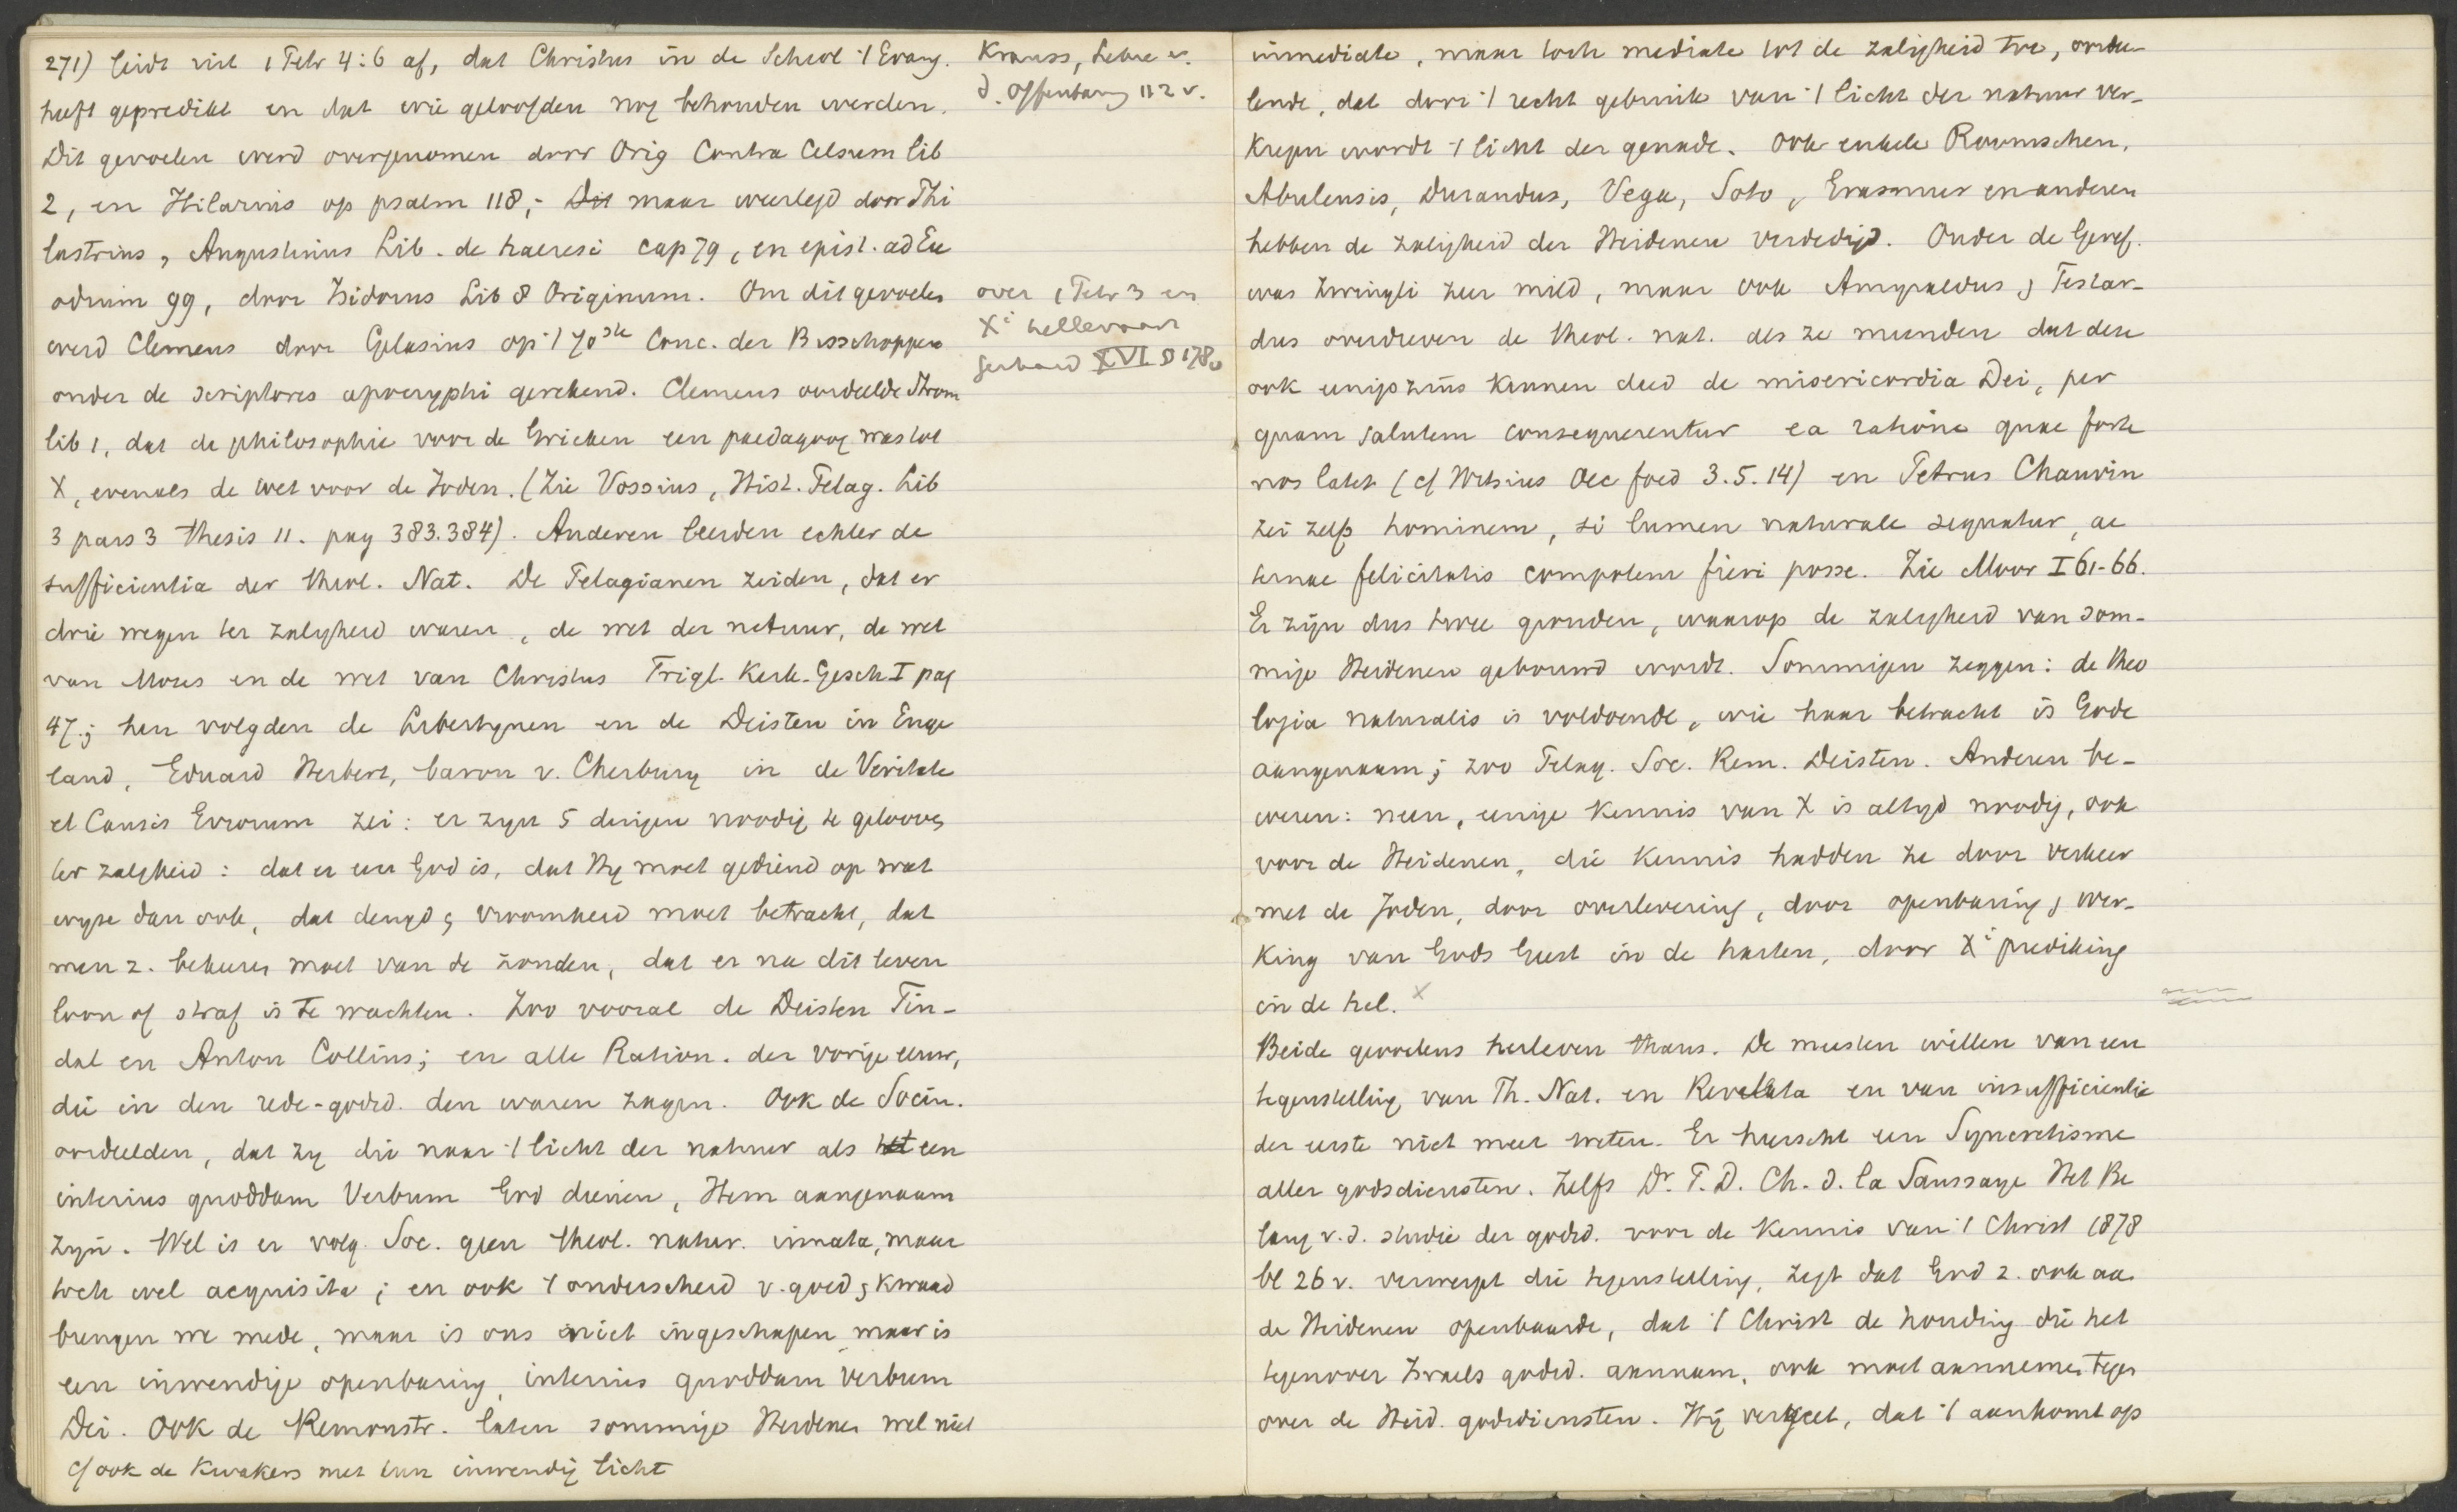 271) leidt uit 1 Petr 4:6 af, dat Christus in de Scheol 't Evang.
heeft gepredikt en dat wie geloofden nog behouden werden.
Dit gevoelen werd overgenomen door Orig Contra Celsum lib
2, en Hilarius op psalm 118,- Dit maar weerlegd door Phi
lastrius, Augustinus Lib. de haeresi cap 79, en epist. ad Eu
odium 99, door Isidorus Lib 8 Originum. Om dit gevoelen
werd Clemens door Gelasius op 't 70ste Conc. der Bisschoppen
onder de scriptores apocryphi gerekend. Clemens oordeelde Strom
lib 1, dat de philosophie voor de Grieken een paedagoog was tot
X, evenals de wet voor de Joden. (Zie Vossius, Hist. Pelag. Lib
3 pars 3 thesis 11. pag 383.384). Anderen leerden echter de
sufficientia der theol. Nat. De Pelagianen zeiden, dat er
drie wegen ter zaligheid waren, de wet der natuur, de wet
van Mozes en de wet van Christus Trigl. Kerk-Gesch I pag
47.; hen volgden de Libertynen en de Deisten in Enge
land, Eduard Herbert, baron v. Cherbury in de Veritate
et Causis Errorum zei: er zyn 5 dingen noodig te gelooven
ter zaligheid: dat er een God is, dat Hy moet gediend op wat
wyze dan ook, dat deugd & vroomheid moet betracht, dat
men z. bekeeren moet van de zonden, dat er na dit leven
loon of straf is te wachten. Zoo vooral de Deisten Tin-
dal en Anton Collins; en alle Ration. der vorige eeuw,
die in den rede-godsd. den waren zagen. Ook de Socin.
oordeelden, dat zy die naar 't licht der natuur als het een
interius quoddam Verbum God dienen, Hem aangenaam
zyn. Wel is er volg. Soc. geen theol. natur. innata, maar
toch wel acquisita; en ook 't onderscheid v. goed & kwaad
brengen we mede, maar is ons niet ingeschapen maar is
een inwendige openbaring, interius quoddam verbum
Dei. Ook de Remonstr. laten sommige Heidenen wel niet
cf ook de Kwakers met hun inwendig licht
Krauss, Lehre v.
d. Offenbarung 112 v.
over 1 Petr 3 en
Xi hellevaart
Gerhard XVII § 178
inmediate, maar toch mediate tot de zaligheid toe, oordee-
lende, dat door 't recht gebruik van 't licht der natuur ver-
kregen wordt 't licht der genade. Ook enkele Roomschen,
Abulensis, Durandus, Vega, Soto, Erasmus en anderen
hebben de zaligheid der Heidenen verdedigd. Onder de Geref.
was Zwingli zeer mild, maar ook Amyraldus & Testar-
dus overdreven de theol. nat. als ze meenden dat deze
ook eenigszins kennen deed de misericordia Dei, per
quam salutem consequerentur ea ratione quae forte
nos latet (cf Witsius Oec foed 3.5.14) en Petrus Chauvin
zei zelfs hominem, si lumen naturale sequatur, ae
ternae felicitatis compotem fieri posse. Zie Moor I 61-66.
Er zijn dus twee gronden, waarop de zaligheid van som-
mige Heidenen gebouwd wordt. Sommigen zeggen: de theo
logia naturalis is voldoende, wie haar betracht is Gode
aangenaam; zoo Pelag. Soc. Rem. Deisten. Anderen be-
weren: neen, eenige kennis van X is altyd noodig, ook
voor de Heidenen, die kennis hadden ze door verkeer
met de Joden, door overlevering, door openbaring & wer-
king van Gods Geest in de harten, door Xi prediking
in de hel. x
Beide gevoelens herleven thans. De meesten willen van een
tegenstelling van Th. Nat. en Revelata en van insufficientie
der eerste niet meer weten. Er heerscht een Syncretisme
aller godsdiensten. Zelfs Dr. P. D. Ch. d. la Saussaye Het Be
lang v. d. studie der godsd. voor de kennis van 't Christ 1878
bl 26 v. verwerpt die tegenstelling, zegt dat God z. ook aan
de Heidenen openbaarde, dat 't Christ de houding die het
tegenover Israels godsd. aannam, ook moet aannemen tegen
over de Heid. godsdiensten. Hij vergeet, dat 't aankomt op